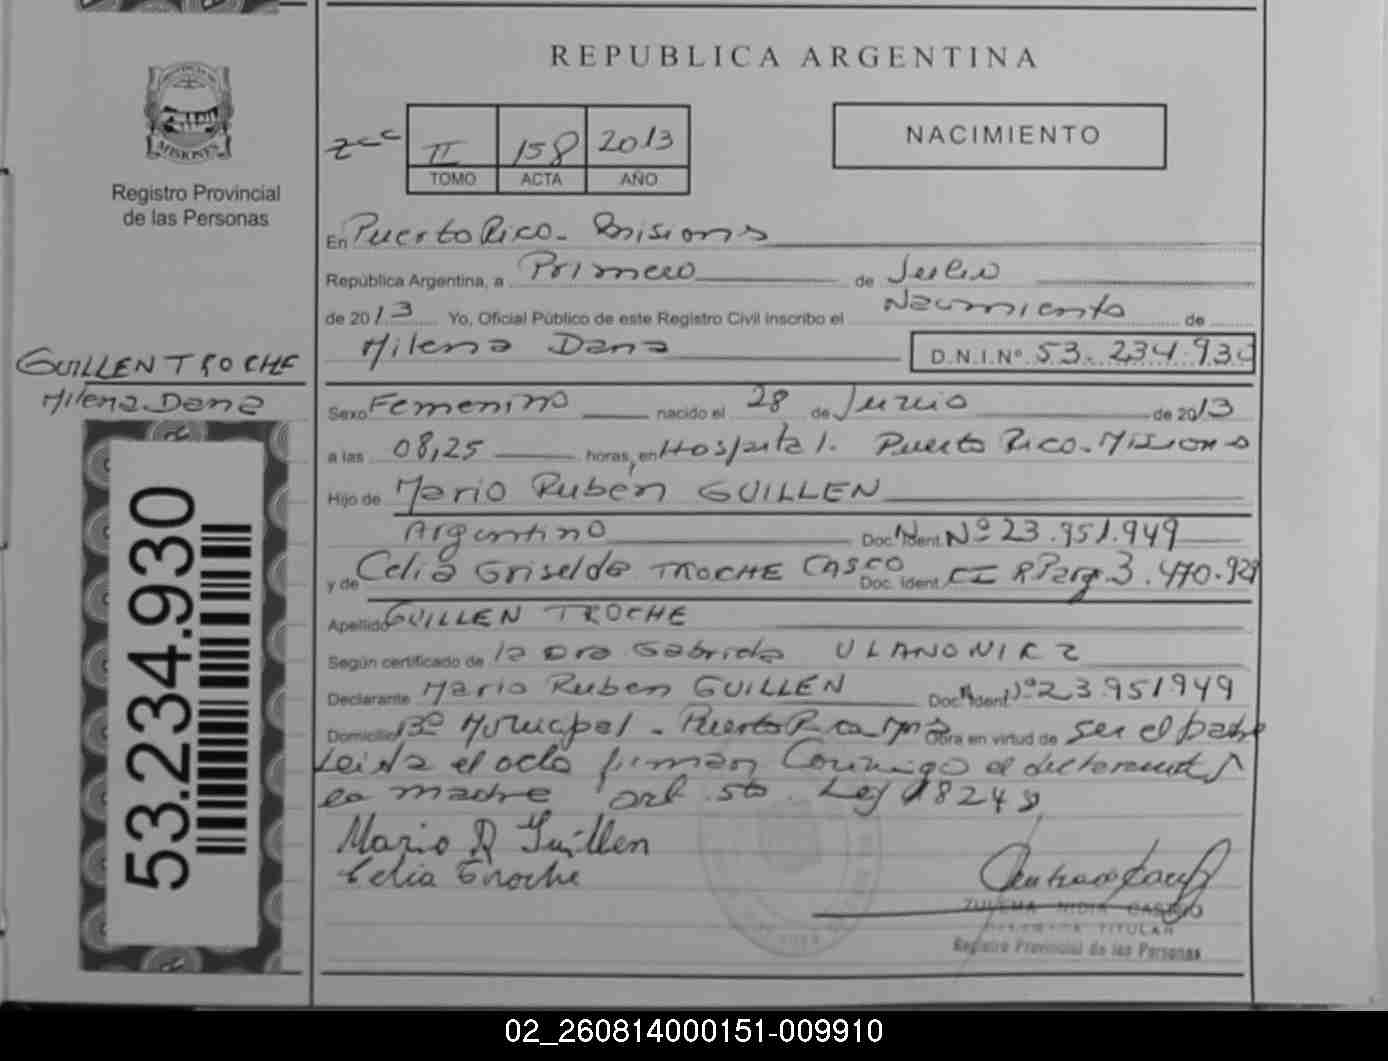 REPUBLICA ARGENTINA
PROVINCIA DE
MISIONES
Registro Provincial
de las Personas
II 158 2013
TOMO ACTA AÑO
NACIMIENTO
En Puerto Rico - Misiones
República Argentina, a Primero de Julio
de 2013 Yo, Oficial Público de este Registro Civil inscribo el Nacimiento de
Milena Dana D.N.I. Nº 53.234.930
GUILLEN TROCHE
Milena Dana
Sexo Femenino nacido el 28 de Junio de 2013
a las 08,25 horas, en Hospital. Puerto Rico - Misiones
Hijo de Mario Ruben GUILLEN
Argentino Doc. Ident. Nº 23.951.949
y de Celia Griselda TROCHE CASCO Doc. Ident. CI R Parg. 3.470.92
Apellido GUILLEN TROCHE
Según certificado de la Dra Gabriela
Declarante Mario Ruben GUILLEN Doc. Ident. Nº 23951949
Domicilio Bº Municipal - Puerto Rico Mnes Obra en virtud de ser el padre
Leida el acta firman Conmigo el declarante y
la madre art. Ley 18248
Mario R Guillen
Celia Troche
ZULEMA NIDIA CASTRO
TITULAR
Registro Provincial de las Personas
53.234.930
02_260814000151-009910